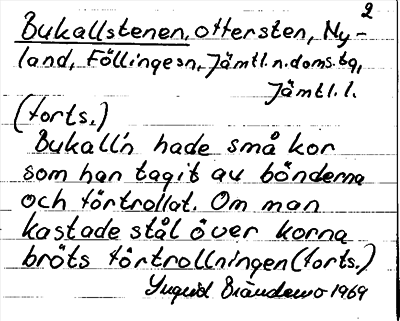 2
Bukallstenen, offersten, Ny-
land, Föllinge sn, Jämtl. n. doms. tg,
Jämtl. l.
(forts.)
Bukall'n hade små kor
som han tagit av bönderna
och förtrollat. Om man
kastade stål över korna
bröts förtrollningen (forts.)
Ingrid 1969